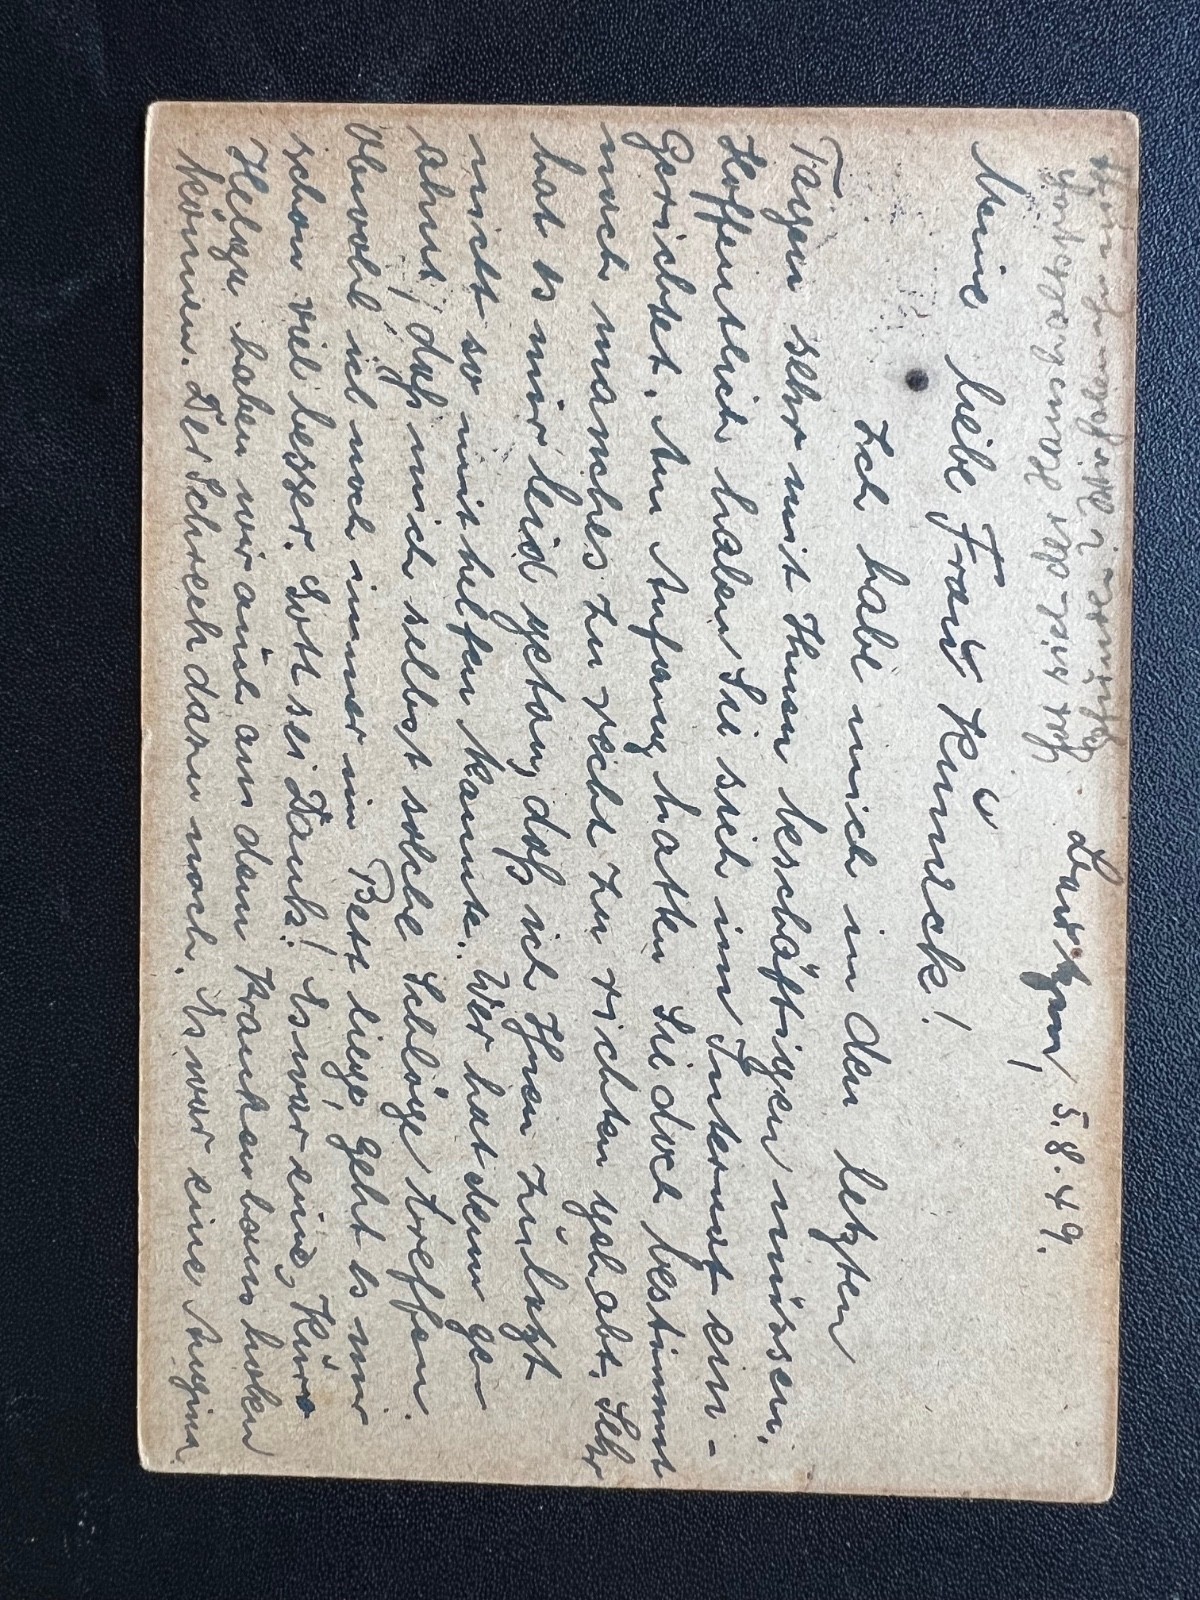 Hat sich der Haushaltspaß
gefunden? Wir haben ihn nicht
5.8.49.
Meine liebe Frau Kunick!
Ich habe mich in den letzten
Tagen sehr mit Ihnen beschäftigen müssen.
Hoffentlich haben Sie sich im Internat ein-
gerichtet. Am Anfang hatten Sie doch bestimmt
noch manches zu recht zu richten gehabt. Sehr
hat es mir leid getan, daß ich Ihnen zuletzt
nicht so mithelfen konnte. Wer hat denn ge-
ahnt, daß mich selbst solche Schläge treffen.
Obwohl ich noch immer im Bett liege, geht es mir
schon viel besser. Gott sei Dank! Es war eine
Helga haben wir auch aus dem Krankenhaus holen
können. Der Schreck dann noch. Es war eine Angina